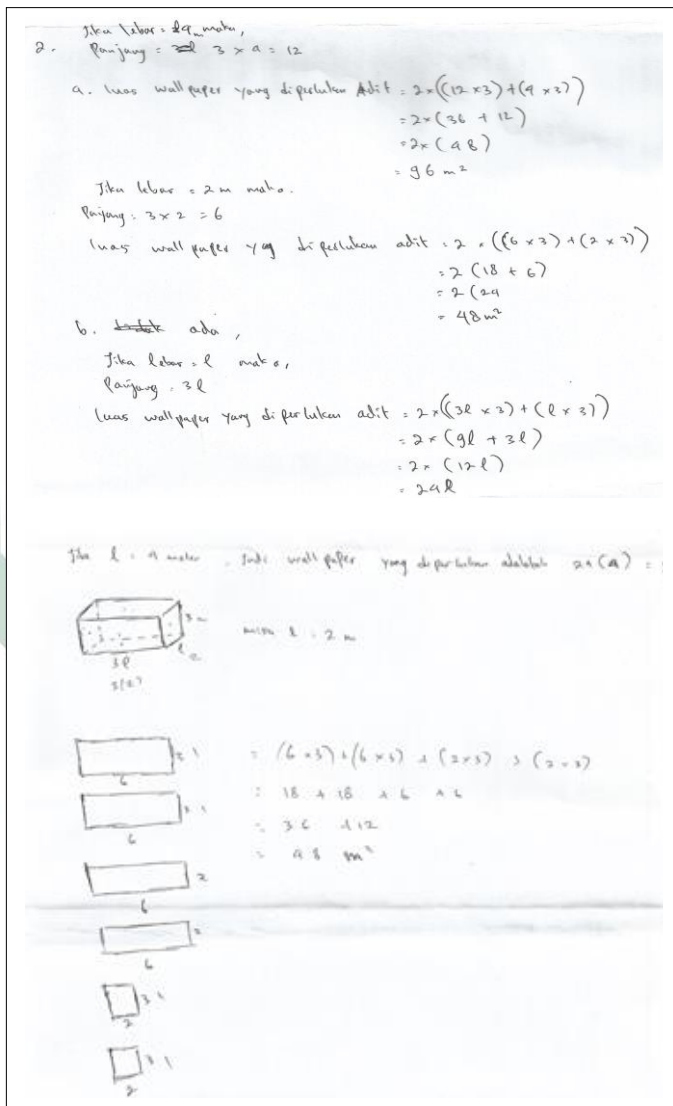 Jika lebar = 4 m maka,
2. Panjang = 3 x 4 = 12
a. luas wallpaper yang diperlukan Adit = 2 x ((12 x 3) + (4 x 3))
= 2 x (36 + 12)
= 2 x (48)
= 96 m²
Jika lebar = 2 m maka.
Panjang : 3 x 2 = 6
luas wallpaper yang diperlukan adit = 2 x ((6 x 3) + (2 x 3))
= 2 (18 + 6)
= 2 (24
= 48 m²
b. ada,
Jika lebar = l maka,
Panjang = 3l
luas wallpaper yang diperlukan adit = 2 x ((3l x 3) + (l x 3))
= 2 x (9l + 3l)
= 2 x (12l)
= 24l
Jika l = 4 meter. Jadi wallpaper yang diperlukan adalah 24 (4) =
3 m
l
2
3l
3(2)
misal l = 2 m
6
= (6 x 3) + (6 x 3) + (2 x 3) + (2 x 3)
6
= 18 + 18 + 6 + 6
= 36 + 12
= 48 m²
2
6
2
6
3
2
2